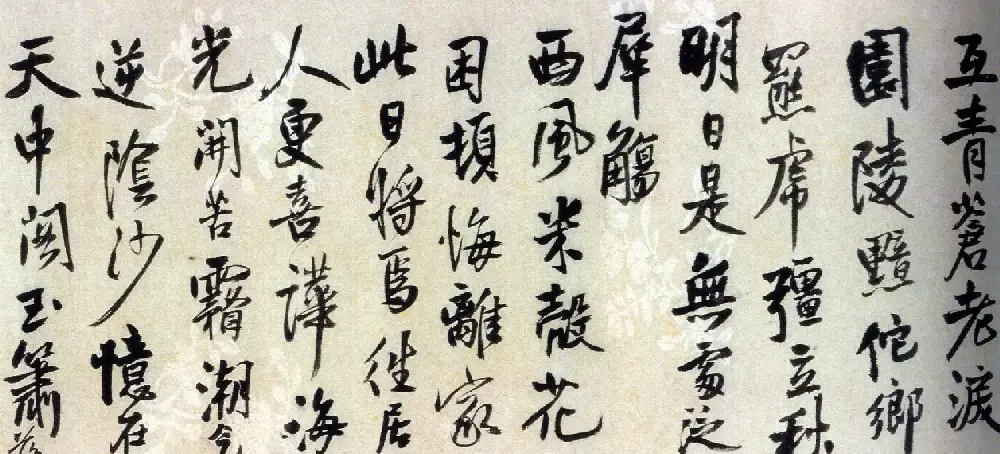 互青蒼老淚
園陵黯佗鄉
羆虎彊立秋
明日是無處泛
犀觴
西風米殼花
困頓悔離家
此日將焉往居
人更喜譁海
光開苦霧潮氣
逆陰沙憶在
天中閣玉簫